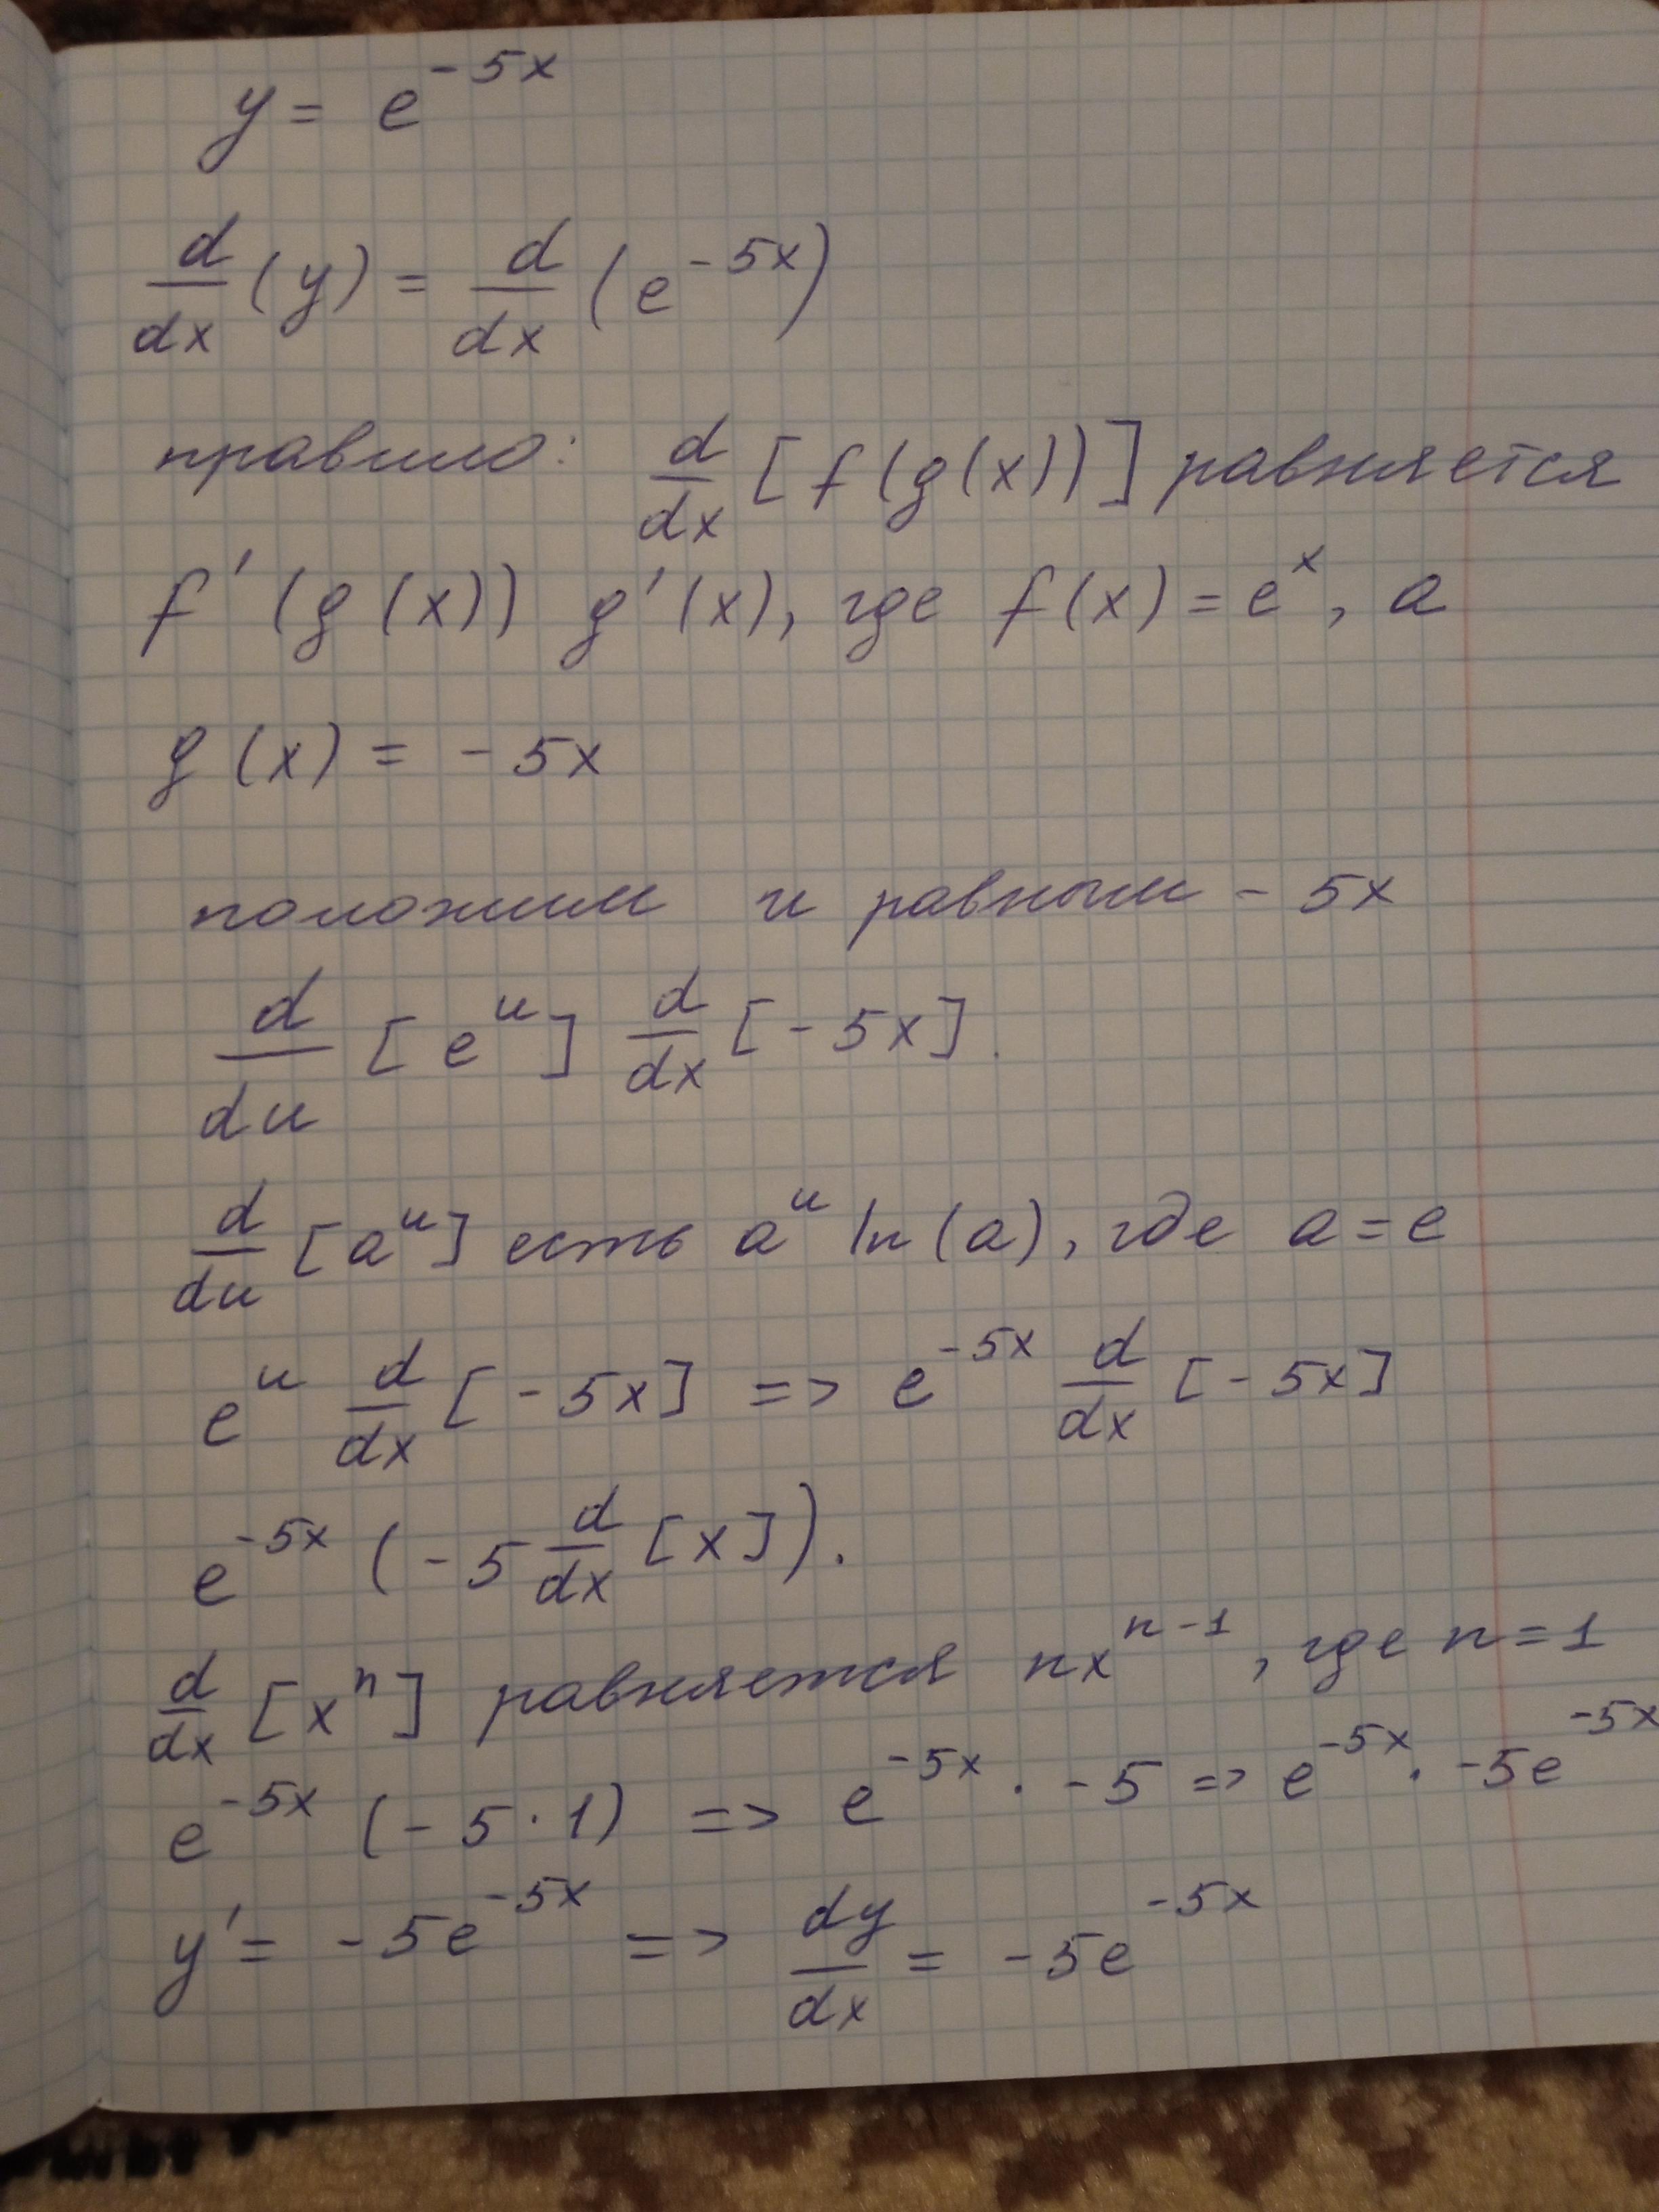 y = e^{-5x}
d/dx (y) = d/dx (e^{-5x})
правило: d/dx [f(g(x))] равняется
f'(g(x)) g'(x), где f(x) = e^x, а
g(x) = -5x
положим u равным -5x
d/du [e^u] d/dx [-5x].
d/du [a^u] есть a^u ln(a), где a = e
e^u d/dx [-5x] => e^{-5x} d/dx [-5x]
e^{-5x} (-5 d/dx [x]).
d/dx [x^n] равняется nx^{n-1}, где n = 1
e^{-5x} (-5 · 1) => e^{-5x} · -5 => e^{-5x} · -5e^{-5x}
y' = -5e^{-5x} => dy/dx = -5e^{-5x}